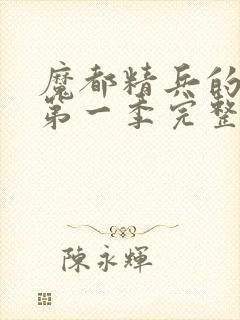 魔都精兵的
第一季完整
陳永輝